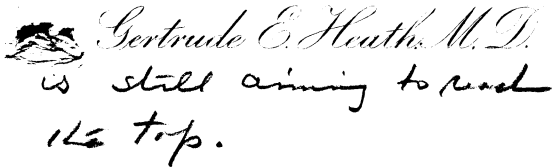 Gertrude E. Heath, M. D.
is still aiming to reach
the top.